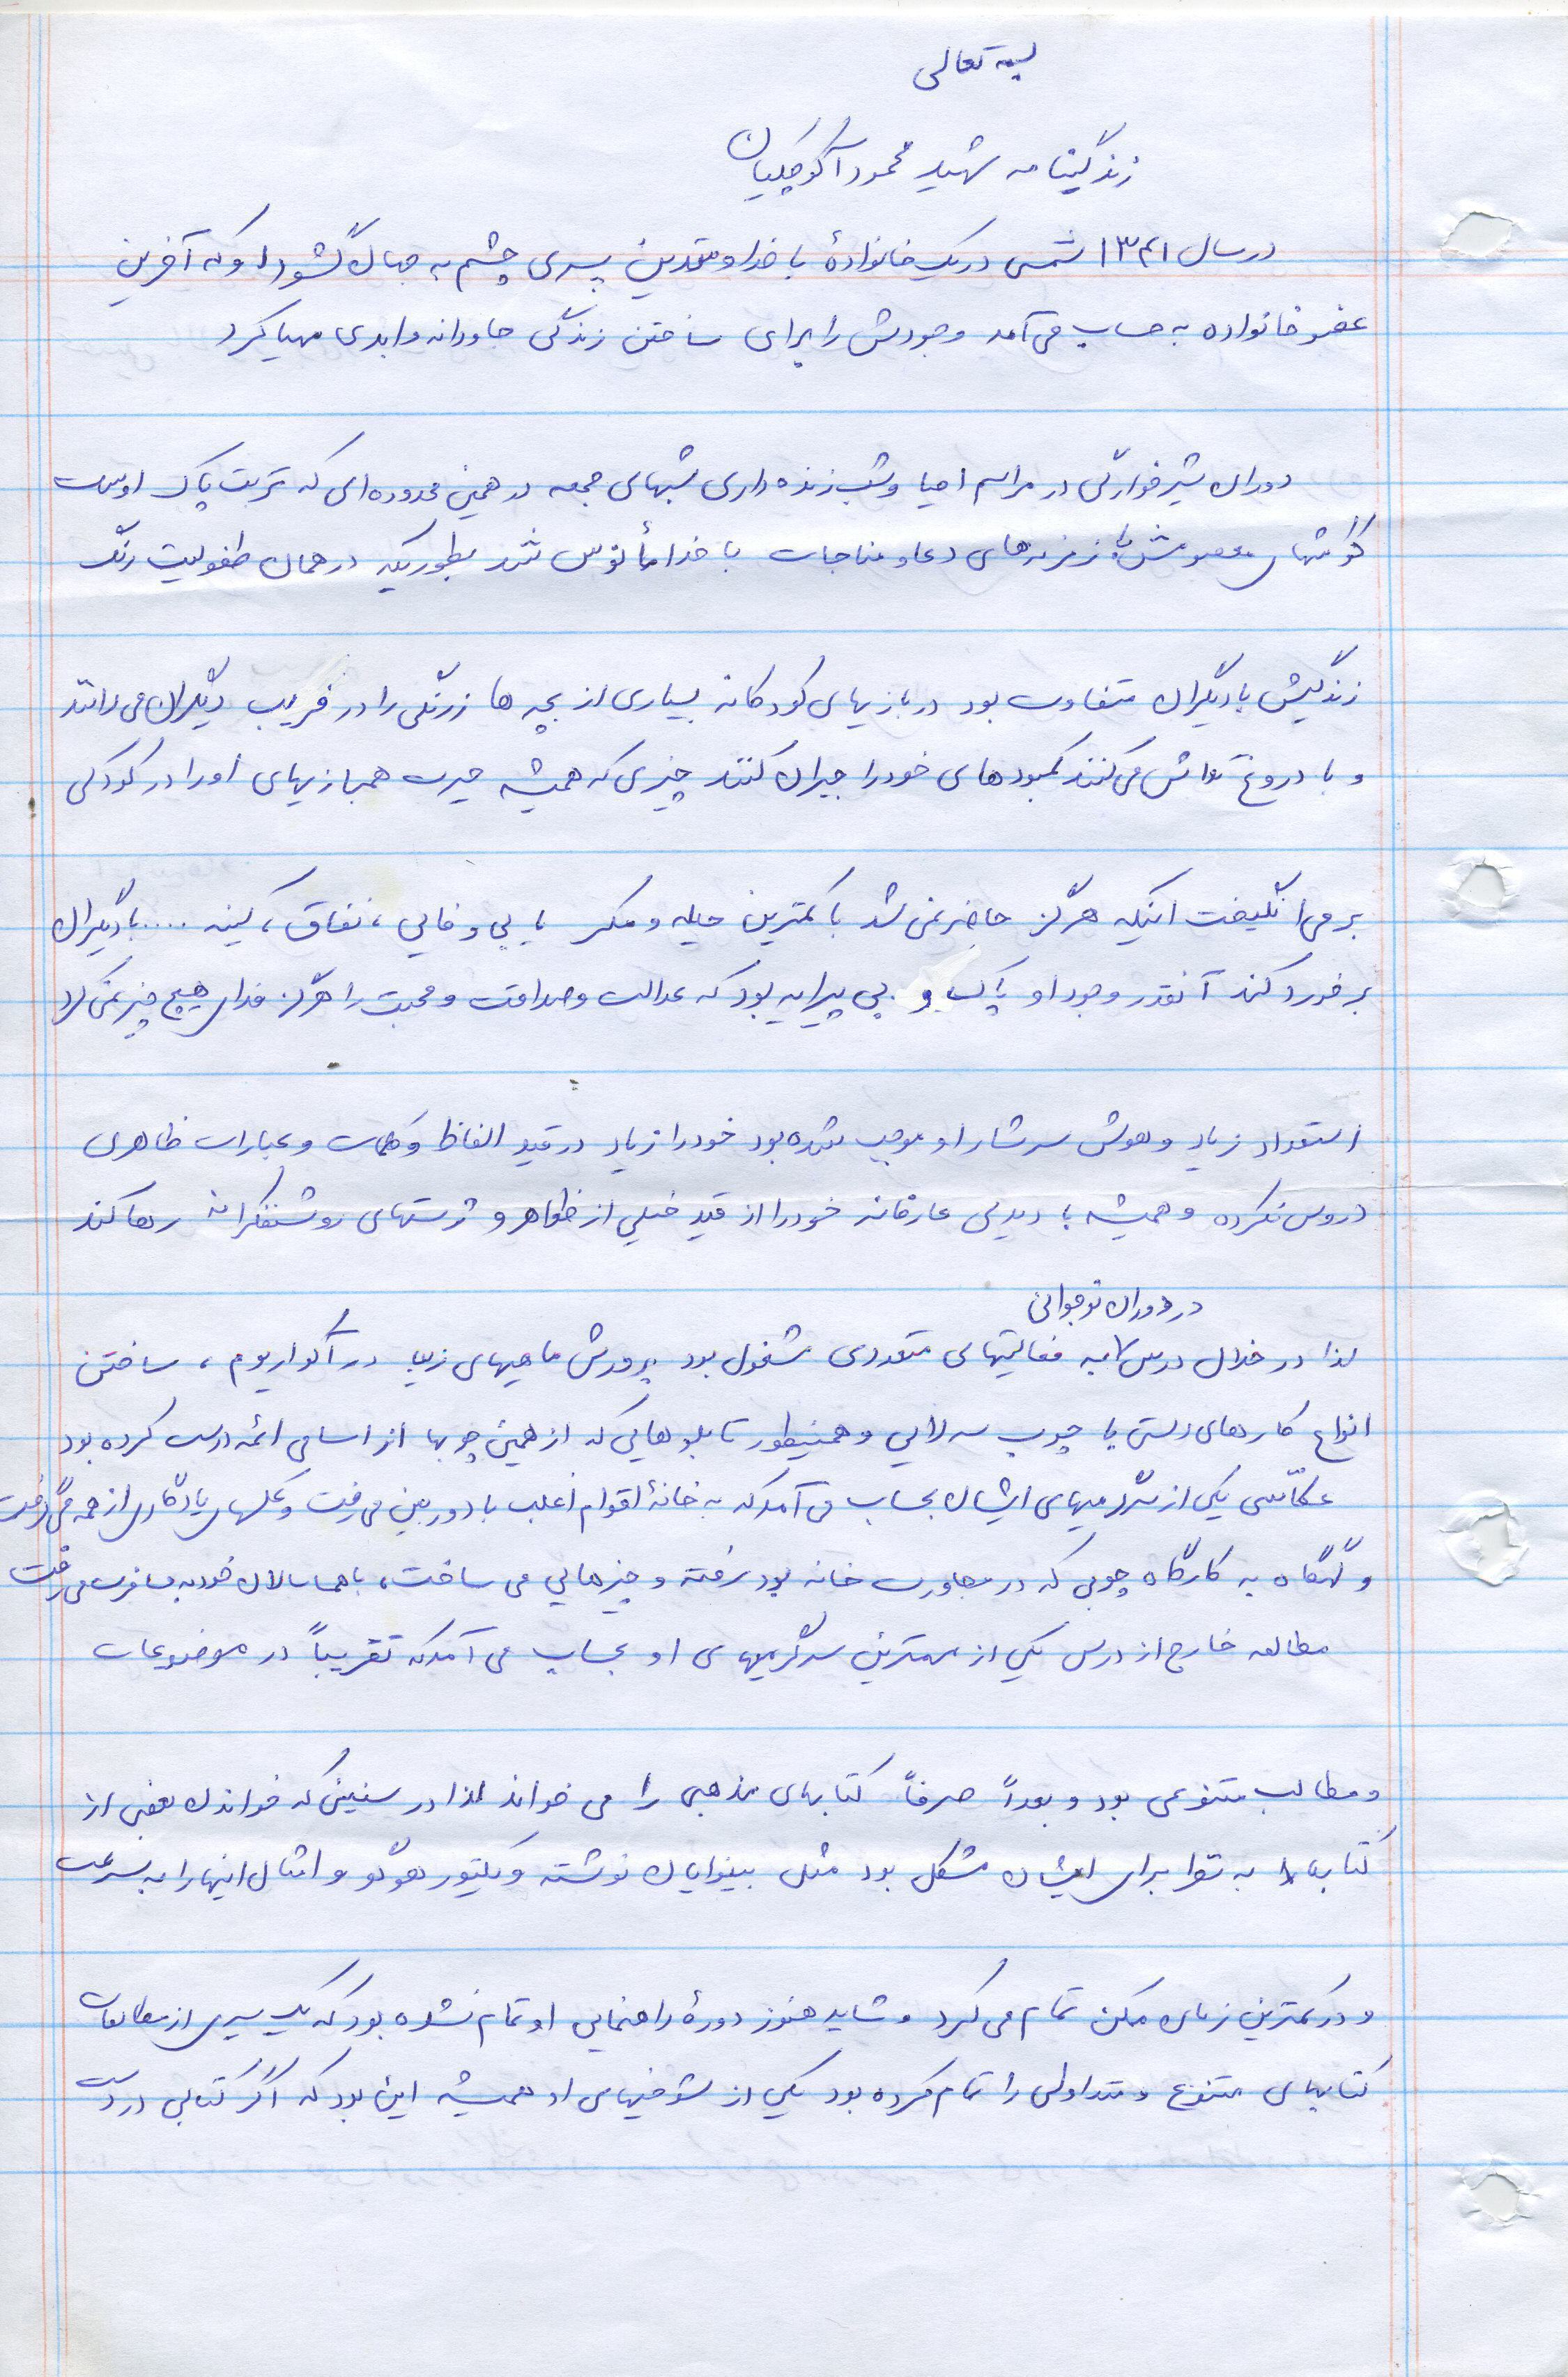 بسمه تعالی
زندگینامه شهید محمود آکوچکیان
در سال ۱۳۴۱ شمسی در یک خانوادهٔ با خدا و متدین پسری چشم به جهان گشود او که آخرین
عضو خانواده به حساب می آمد وجودش را برای ساختن زندگی جاودانه و ابدی مهیا کرد
دوران شیرخوارگی در مراسم احیا و شب زنده داری شبهای جمعه در همین محدوده ای که تربت پاک اوست
گوشهای معصومش با زمزمه های دعا و مناجات با خدا مأنوس شد بطوریکه در همان طفولیت رنگ
زندگیش با دیگران متفاوت بود در بازیهای کودکانه بسیاری از بچه ها زرنگی را در فریب دیگران می دانند
و با دروغ تلاش می کنند کمبودهای خود را جبران کنند چیزی که همیشه حیرت همبازیهای او را در کودکی
بر می انگیخت اینکه هرگز حاضر نمی شد با کمترین حیله و مکر یا بی وفایی ، نفاق ، کینه .... با دیگران
برخورد کند آنقدر وجود او پاک و بی پیرایه بود که عدالت و صداقت و محبت را هرگز فدای هیچ چیز نمی کرد
استعداد زیاد و هوش سرشار او موجب شده بود خود را زیاد در قید الفاظ و کلمات و عبارات ظاهری
دروس نکرده و همیشه با دیدی عارفانه خود را از قید خیلی از ظواهر و ژستهای روشنفکرانه رها کند
در دوران نوجوانی
لذا در خلال درس به فعالیتهای متعددی مشغول بود پرورش ماهیهای زیبا در آکواریوم ، ساختن
انواع کاردهای دستی با چوب سه لایی و همینطور تابلوهایی که از همین چوبها از اسامی ائمه درست کرده بود
عکاسی یکی از سرگرمیهای ایشان بحساب می آمد که به خانهٔ اقوام اغلب با دوربین می رفت و عکسهای یادگاری از همه می گرفت
و گهگاه به کارگاه چوبی که در مجاورت خانه بود رفته و چیزهایی می ساخت ، با همسالان خود به مسافرت می رفت
مطالعه خارج از درس یکی از مهمترین سرگرمیهای او بحساب می آمد که تقریباً در موضوعات
و مطالب متنوعی بود و بعداً صرفاً کتابهای مذهبی را می خواند لذا در سنینی که خواندن بعضی از
کتابها به برای ایشان مشکل بود مثل بینوایان نوشته ویکتور هوگو و امثال اینها را به سرعت
و در کمترین زمان ممکن تمام می کرد و شاید هنوز دورهٔ راهنمایی او تمام نشده بود که یک سری از مطالعات
کتابهای متنوع و متداولی را تمام کرده بود یکی از شوخیهای او همیشه این بود که اگر کتابی در دست